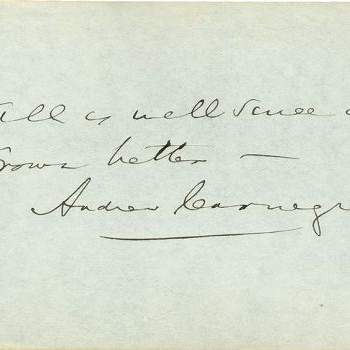 All is well since a
Grows better —
Andrew Carnegi